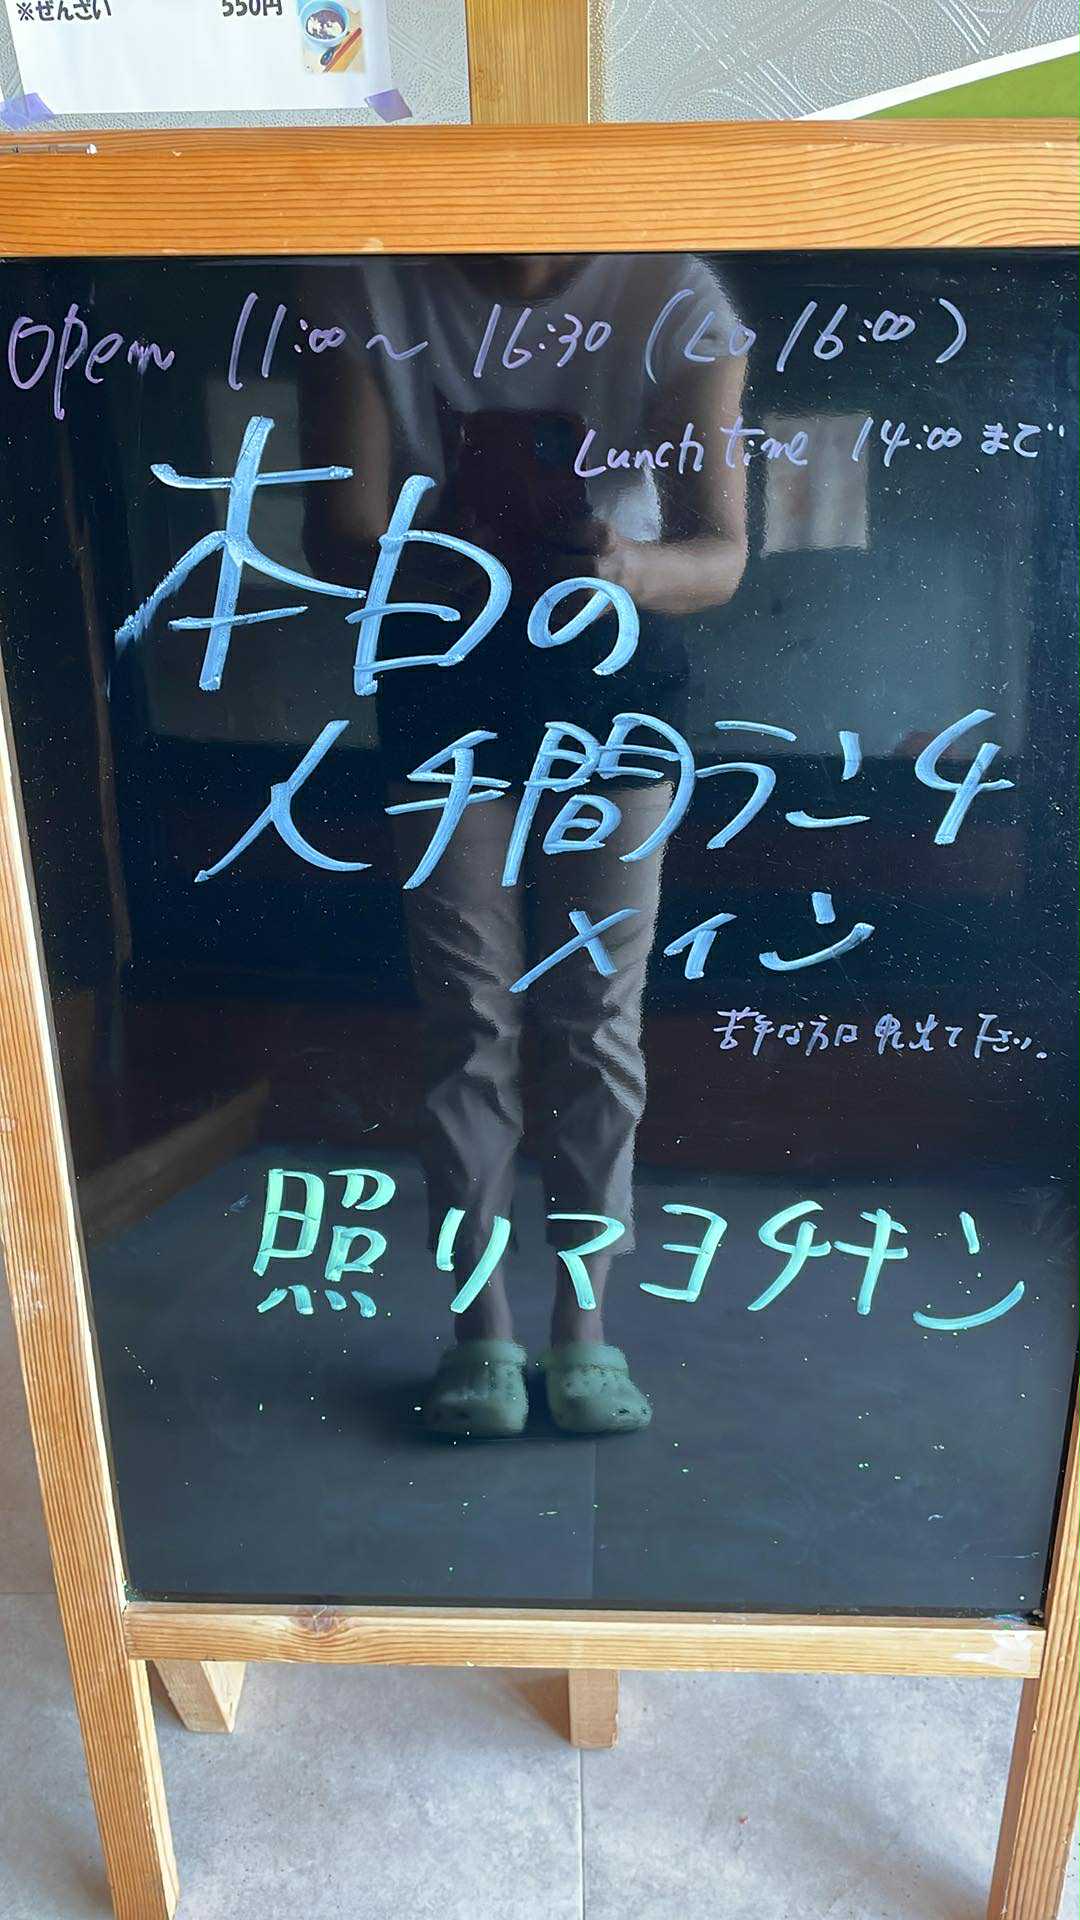 ※ぜんざい 550円
Open 11:00〜16:30 (LO 16:00)
Lunch time 14:00まで
本日の
人千間ランチ
メイン
苦手な方は申出て下さい。
照リマヨチキン